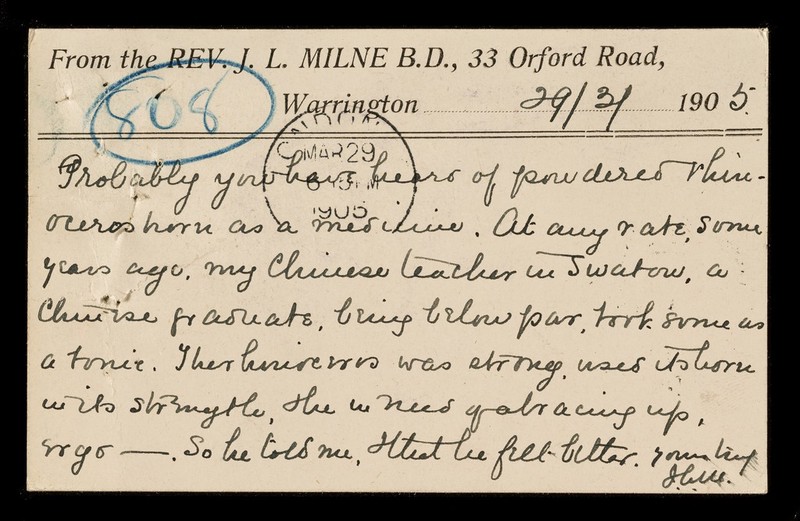 From the REV. J. L. MILNE B.D., 33 Orford Road,
808
Warrington 29/3/ 1905.
MAR 29
1905
Probably you have heard of powdered rhin-
oceros horn as a medicine. At any rate, some
years ago, my Chinese teacher in Swatow, a
Chinese graduate, being below par, took some as
a tonic. The rhinoceros was strong, used its horn
in its strength, & he in need of a bracing up,
ergo —. So he told me, & that he felt better. yours
J.L.M.